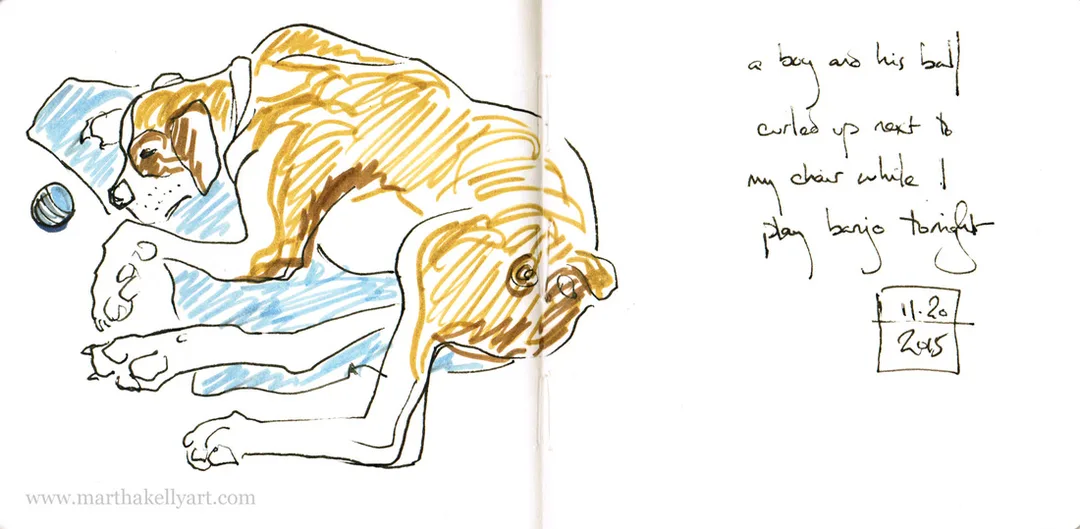 a boy and his ball
curled up next to
my chair while I
play banjo tonight
11.20
2015
www.marthakellyart.com